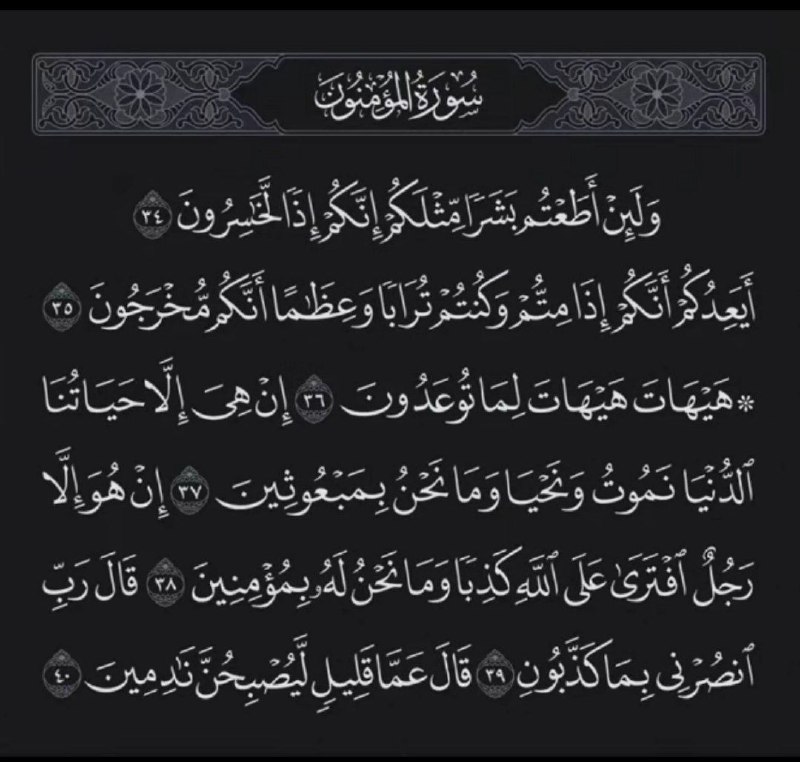 سُورَةُ المُؤْمِنُونَ
وَلَئِنْ أَطَعْتُم بَشَرًا مِّثْلَكُمْ إِنَّكُمْ إِذًا لَّخَٰسِرُونَ ٣٤
أَيَعِدُكُمْ أَنَّكُمْ إِذَا مِتُّمْ وَكُنتُمْ تُرَابًا وَعِظَٰمًا أَنَّكُم مُّخْرَجُونَ ٣٥
۞ هَيْهَاتَ هَيْهَاتَ لِمَا تُوعَدُونَ ٣٦ إِنْ هِىَ إِلَّا حَيَاتُنَا
ٱلدُّنْيَا نَمُوتُ وَنَحْيَا وَمَا نَحْنُ بِمَبْعُوثِينَ ٣٧ إِنْ هُوَ إِلَّا
رَجُلٌ ٱفْتَرَىٰ عَلَى ٱللَّهِ كَذِبًا وَمَا نَحْنُ لَهُۥ بِمُؤْمِنِينَ ٣٨ قَالَ رَبِّ
ٱنصُرْنِى بِمَا كَذَّبُونِ ٣٩ قَالَ عَمَّا قَلِيلٍ لَّيُصْبِحُنَّ نَٰدِمِينَ ٤٠